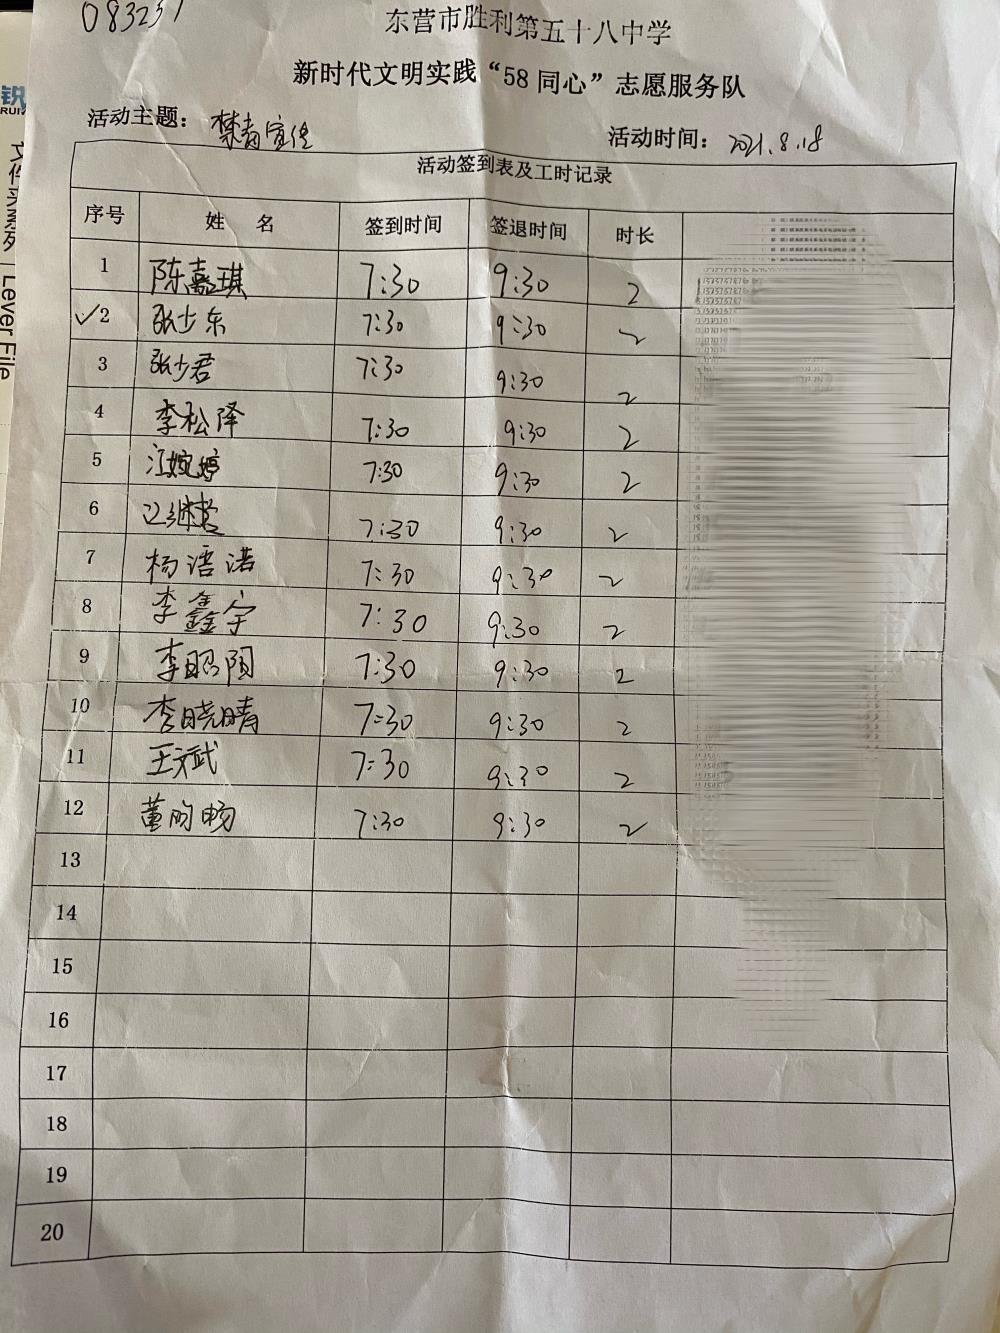 083231
东营市胜利第五十八中学
新时代文明实践“58同心”志愿服务队
活动主题：禁毒宣传 活动时间：2021.8.18
活动签到表及工时记录
序号 姓 名 签到时间 签退时间 时长
1 陈嘉琪 7:30 9:30 2
✓2 张少东 7:30 9:30 2
3 张少君 7:30 9:30 2
4 李松泽 7:30 9:30 2
5 江婉婷 7:30 9:30 2
6 7:30 9:30 2
7 杨语诺 7:30 9:30 2
8 李鑫宇 7:30 9:30 2
9 李昭 7:30 9:30 2
10 李晓晴 7:30 9:30 2
11 王斌 7:30 9:30 2
12 董昀畅 7:30 9:30 2
13
14
15
16
17
18
19
20
锐
RUI
文件夹系列
Lever File